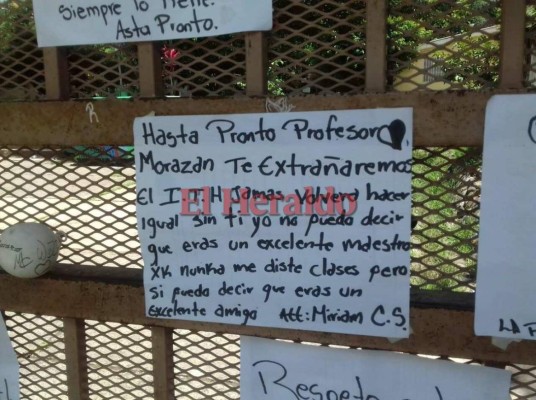 siempre lo
Asta Pronto.
R
Hasta Pronto Profesor
Morazan Te Extrañaremos
El I H Jamas Volvera hacer
igual sin ti yo no puedo decir
que eras un excelente maestro
XK nunka me diste clases pero
si puedo decir que eras un
Excelente amigo Att: Miriam C.S.
El Heraldo
LA
Respeto